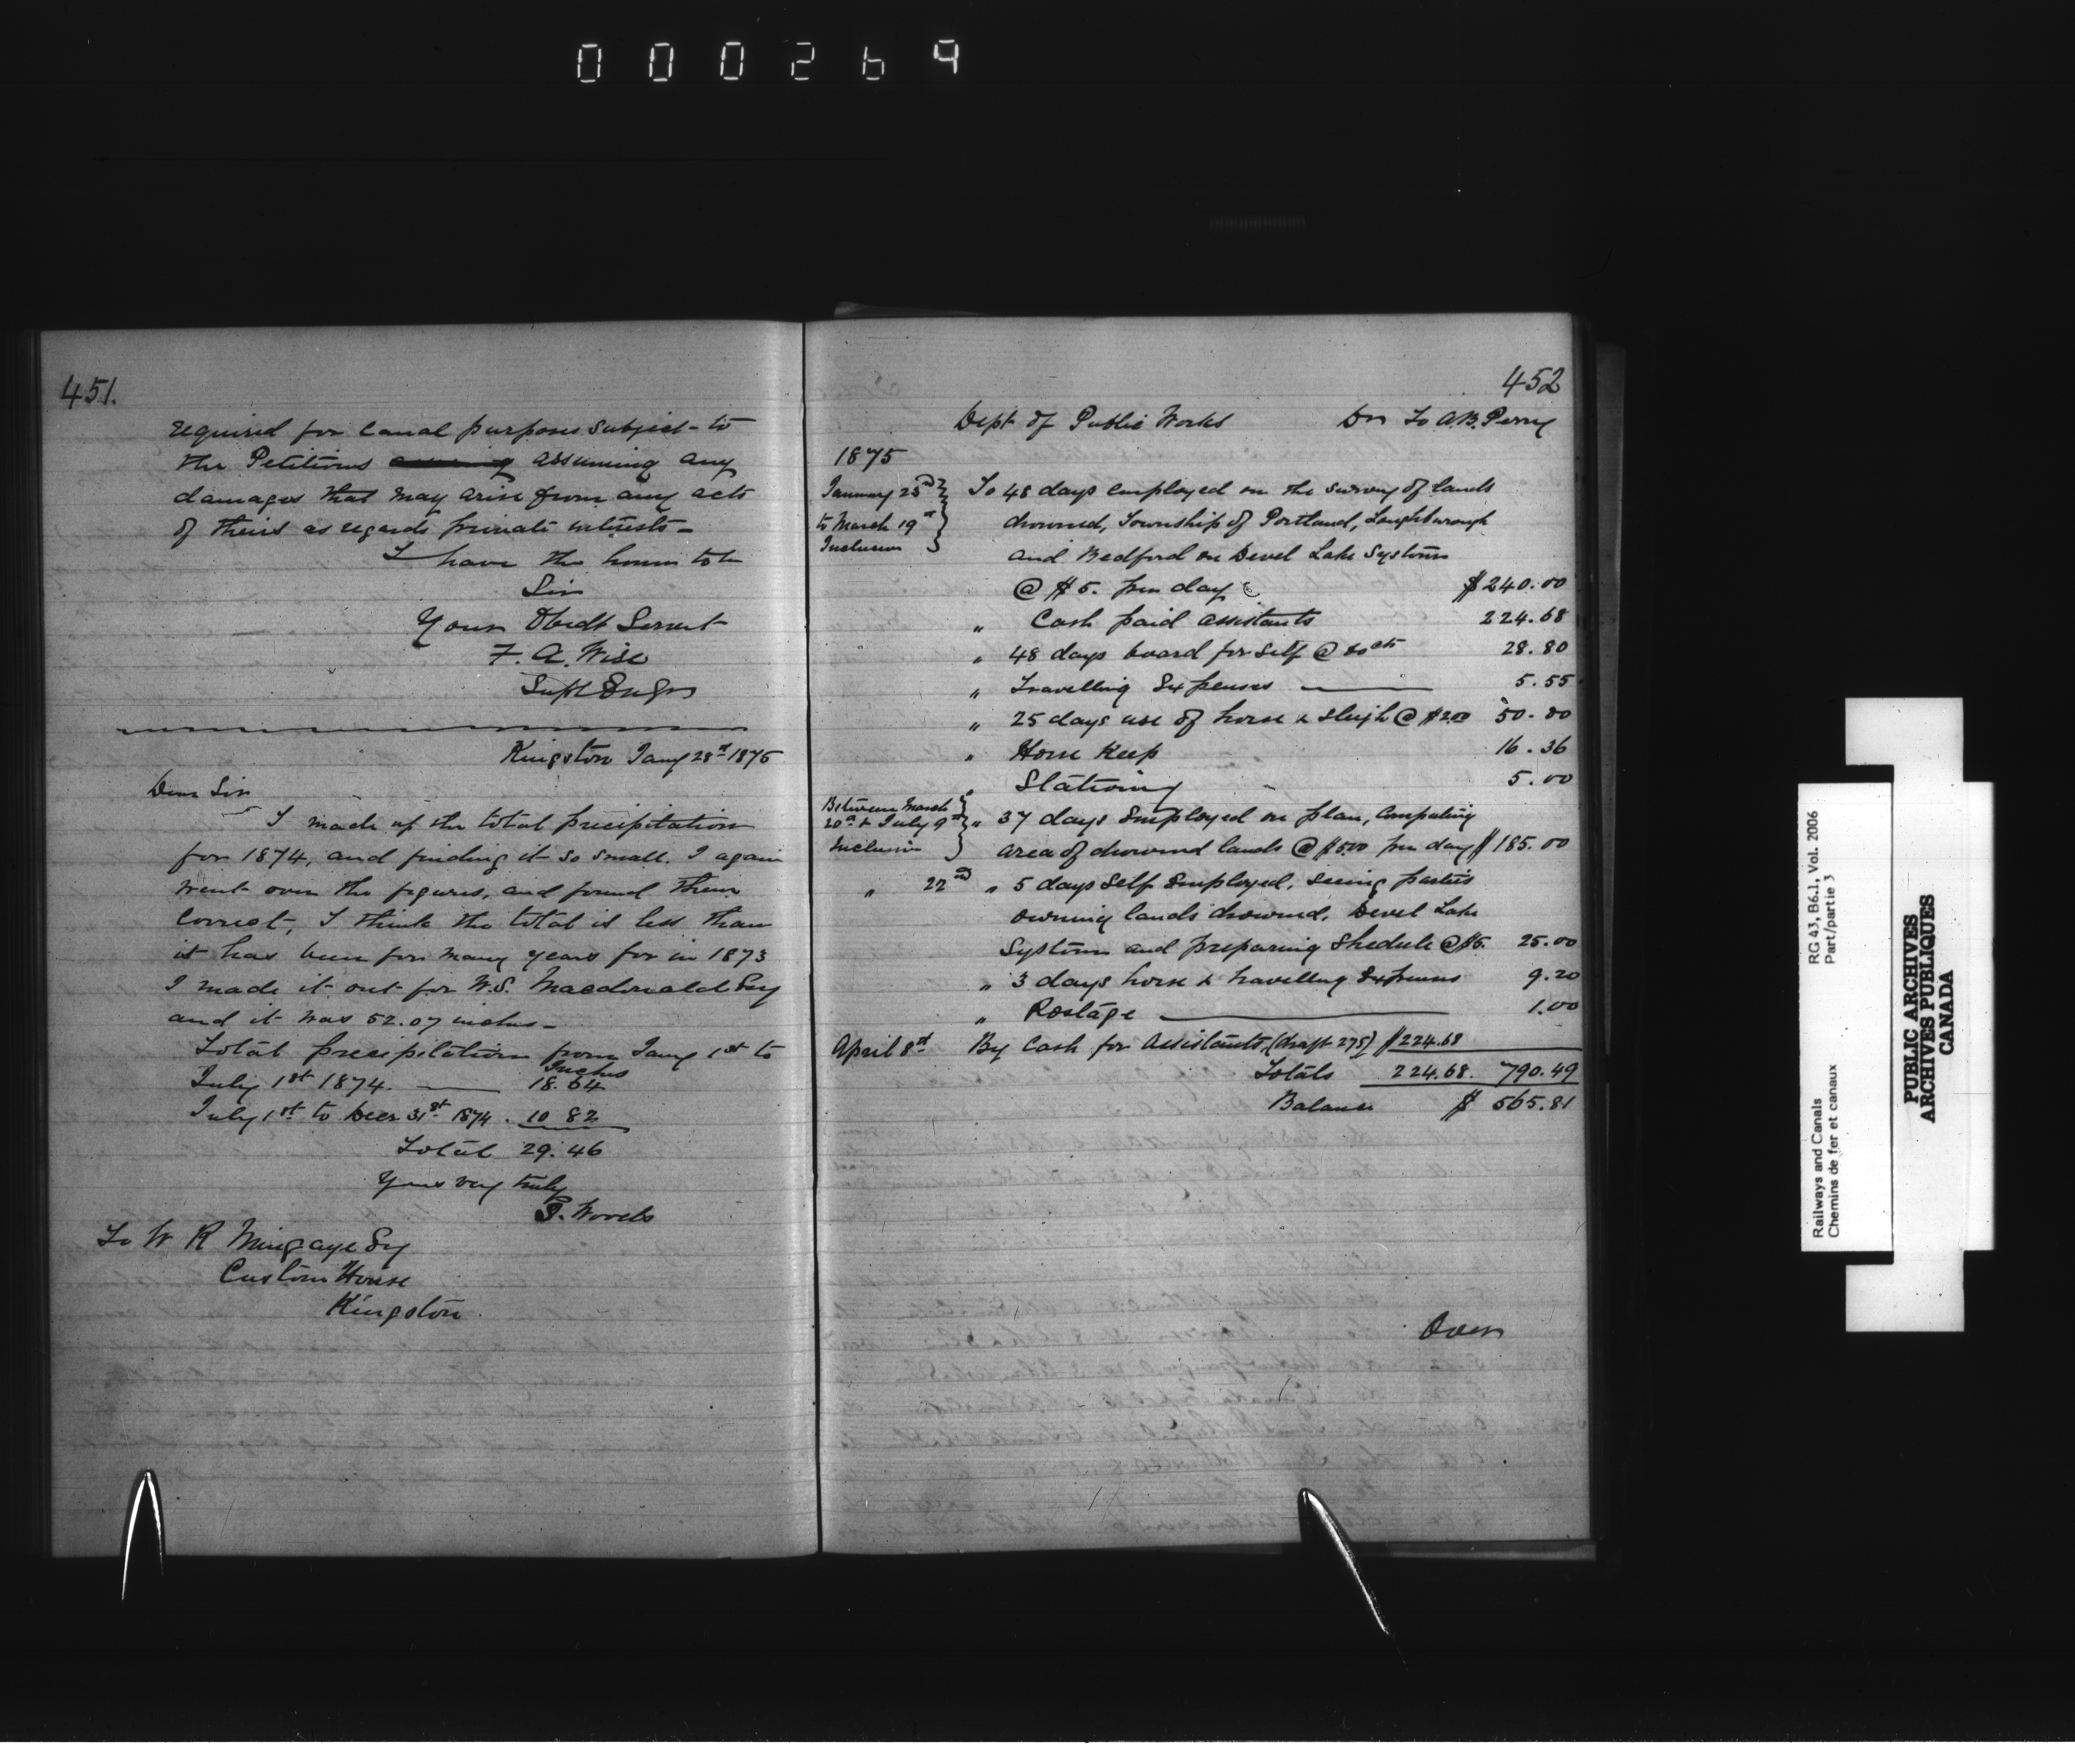 000269
451.
required for Canal purposes subject to
the Petitions assuming any
damages that may arise from any acts
of theirs as regards private interests-
I have the honor to be
Sir
Your Obedt Servent
F. A. Wise
Supt Engr
Kingston Jany 28th 1875
Dear Sir
I made up the total precipitation
for 1874, and finding it so small. I again
went over the figures, and found them
correct, I think the total is less than
it has been for many years for in 1873
I made it out for W.S. Macdonald Esq
and it was 52.07 inches-
Total precipitation from Jany 1st to
Inches
July 1st 1874. — 18.64
July 1st to Decr 31st 1874. 10 82
Total 29.46
Yours very truly
To W R Mingaye Esq
Custom House
Kingston.
452
Dept of Public Works Dr To A.B. Perry
1875
January 23rd To 48 days employed on the survey of lands
to March 19th drowned, Township of Portland, Loughborough
Inclusive and Bedford on Devel Lake System
@ $5. per day $240.00
" Cash paid assistants 224.68
" 48 days board for self @ 60cts 28.80
" Travelling Expenses — 5.55
" 25 days use of horse & sleigh @ $2.00 50.00
" Horse Keep 16.36
" Stationry 5.00
Between March
20th & July 9th " 37 days Employed on plan, Computing
Inclusive area of drowned lands @ $5.00 per day $185.00
" 22nd " 5 days Self Employed, seeing parties
owning lands drowned, Devel Lake
System and preparing Shedule @ $5. 25.00
" 3 days horse & travelling Expenses 9.20
" Postage — 1.00
April 8th By Cash for Assistants, (draft 275) $224.68
Totals 224.68. 790.49
Balance $ 565.81
Over
RG 43, B6.1, Vol. 2006
Part/partie 3
Railways and Canals
Chemins de fer et canaux
PUBLIC ARCHIVES
ARCHIVES PUBLIQUES
CANADA